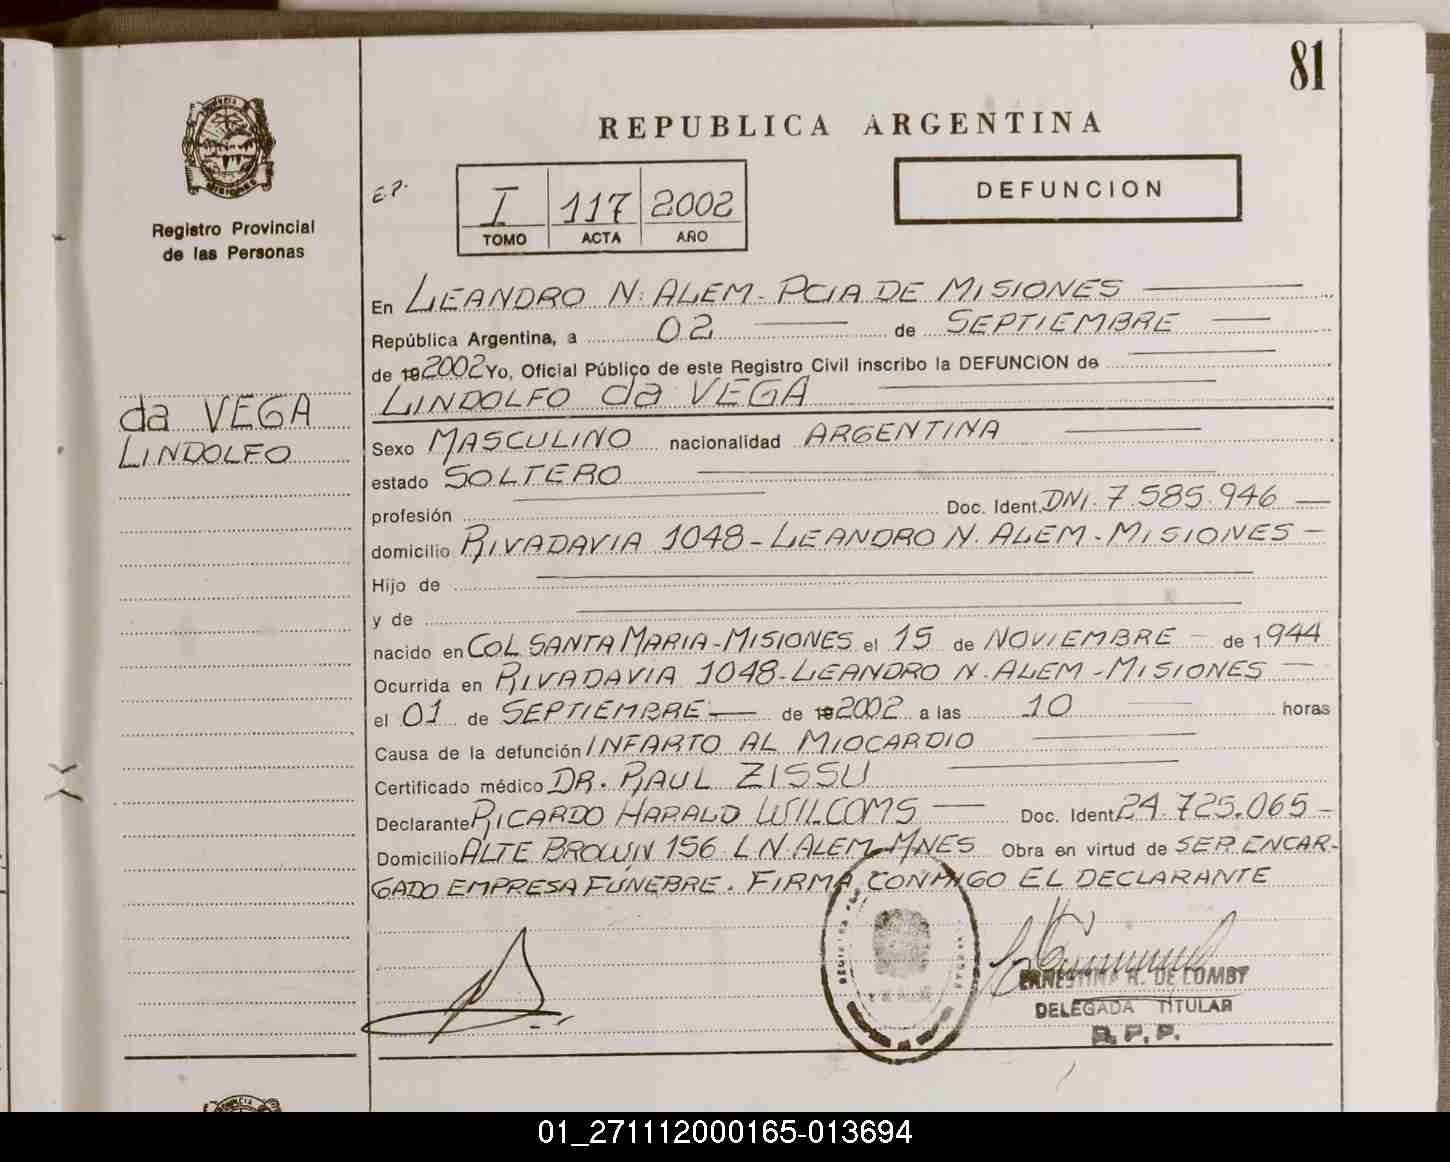 81
REPUBLICA ARGENTINA
Registro Provincial
de las Personas
E.P.
I 117 2002
TOMO ACTA AÑO
DEFUNCION
En LEANDRO N. ALEM - PCIA DE MISIONES
República Argentina, a 02 de SEPTIEMBRE
de 192002 Yo, Oficial Público de este Registro Civil inscribo la DEFUNCION de
LINDOLFO da VEGA
da VEGA
LINDOLFO
Sexo MASCULINO nacionalidad ARGENTINA
estado SOLTERO
profesión Doc. Ident. DNI. 7.585.946
domicilio RIVADAVIA 1048 - LEANDRO N. ALEM - MISIONES
Hijo de
y de
nacido en COL SANTA MARIA - MISIONES el 15 de NOVIEMBRE de 1944
Ocurrida en RIVADAVIA 1048 - LEANDRO N. ALEM - MISIONES
el 01 de SEPTIEMBRE de 192002 a las 10 horas
Causa de la defunción INFARTO AL MIOCARDIO
Certificado médico DR. RAUL ZISSU
Declarante RICARDO HARALD WILCOMS Doc. Ident 24.725.065
Domicilio ALTE BROWN 156 L N. ALEM MNES Obra en virtud de SER ENCAR-
GADO EMPRESA FUNEBRE. FIRMA CONMIGO EL DECLARANTE
ERNESTINA R. DE LOMBY
DELEGADA TITULAR
R. P. P.
01_271112000165-013694